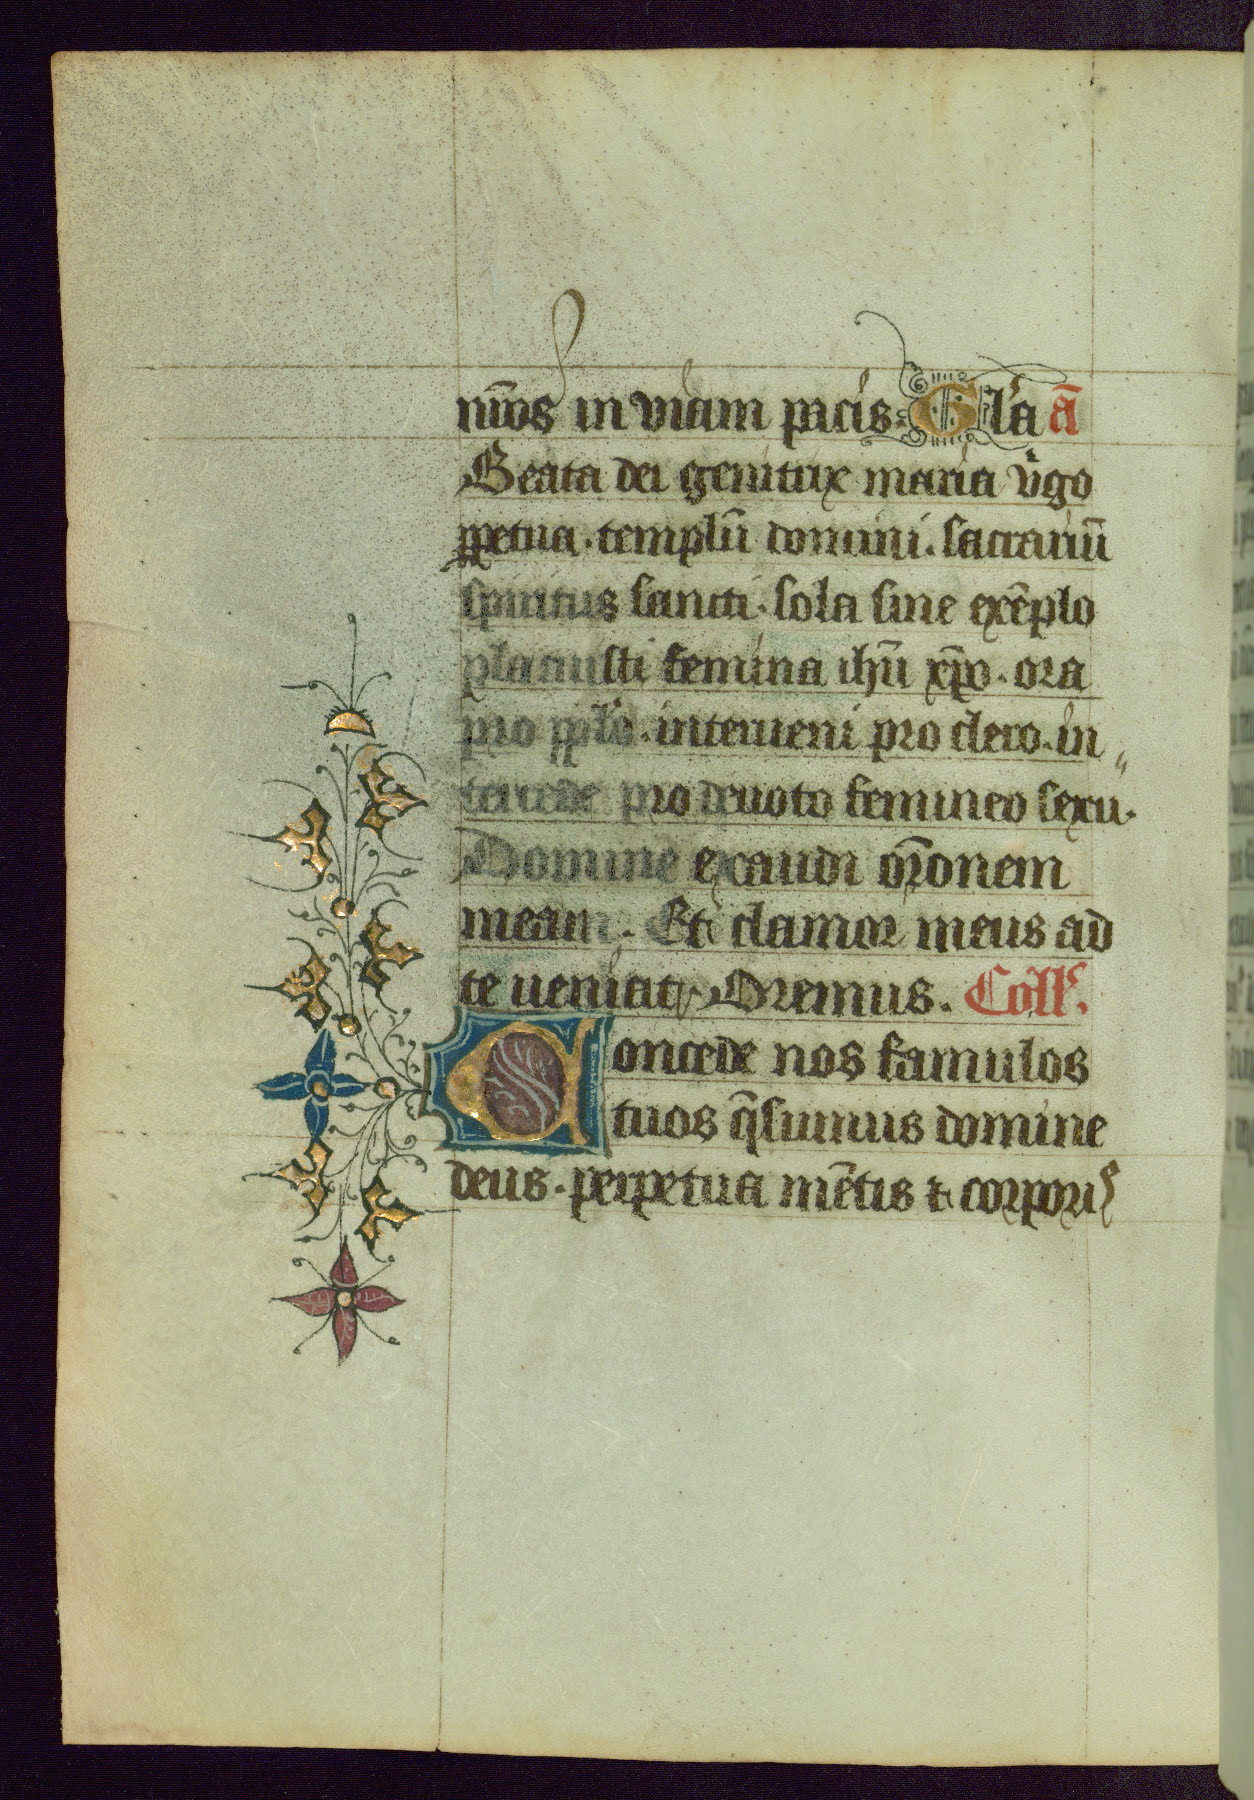 nr̄os in viam pacis. Gl'a ā
Beata dei genitrix maria v'go
ꝑpetua. templū domini. sacrariū
spiritus sancti. sola sine exēplo
placuisti femina ihū xp̄o. ora
pro ppl'o. interueni pro clero. in„
tercede pro deuoto femineo sexu.
Domine exaudi or̄onem
meam. Et clamor meus ad
te ueniat Oremus. Coll'.
Concede nos famulos
tuos q̄sumus domine
deus. perpetua mētis ⁊ corporis